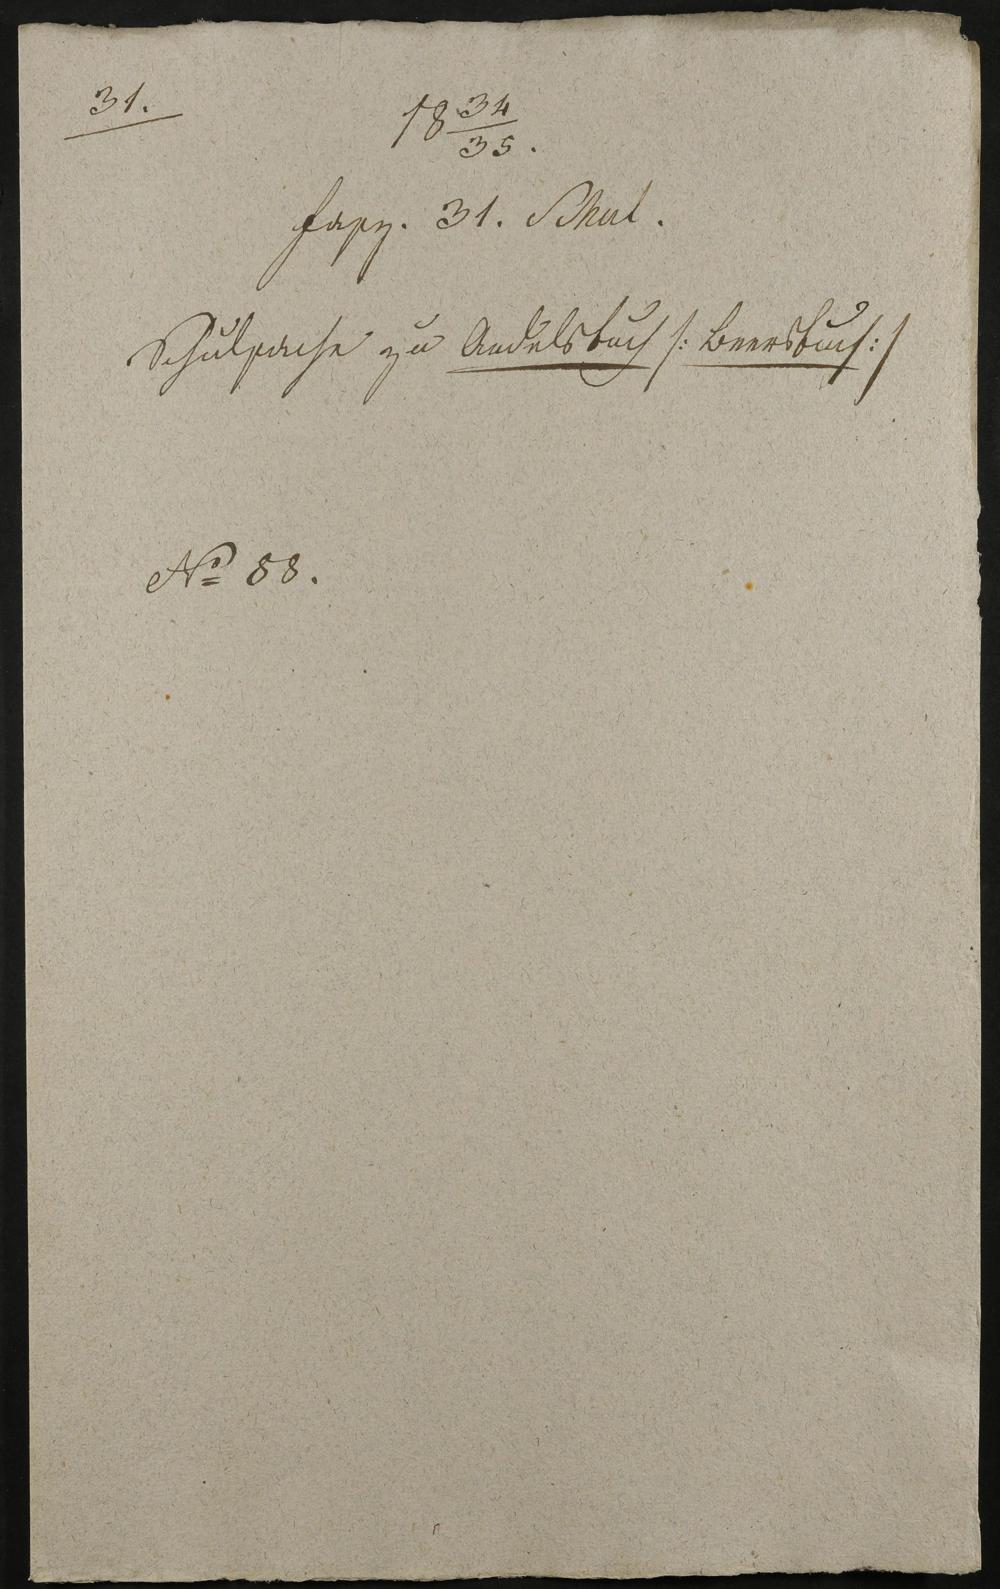 31.
18 34/35.
Fasz. 31. Schul.
Schulsache zu Andelsbuch /: Beersbuch :/
No 88.